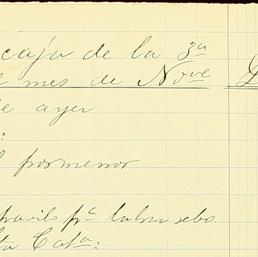 caja de la 3ª
mes de Novᵉ
de ayer
:
pormenor
pᵃ labar sebo
Casa: